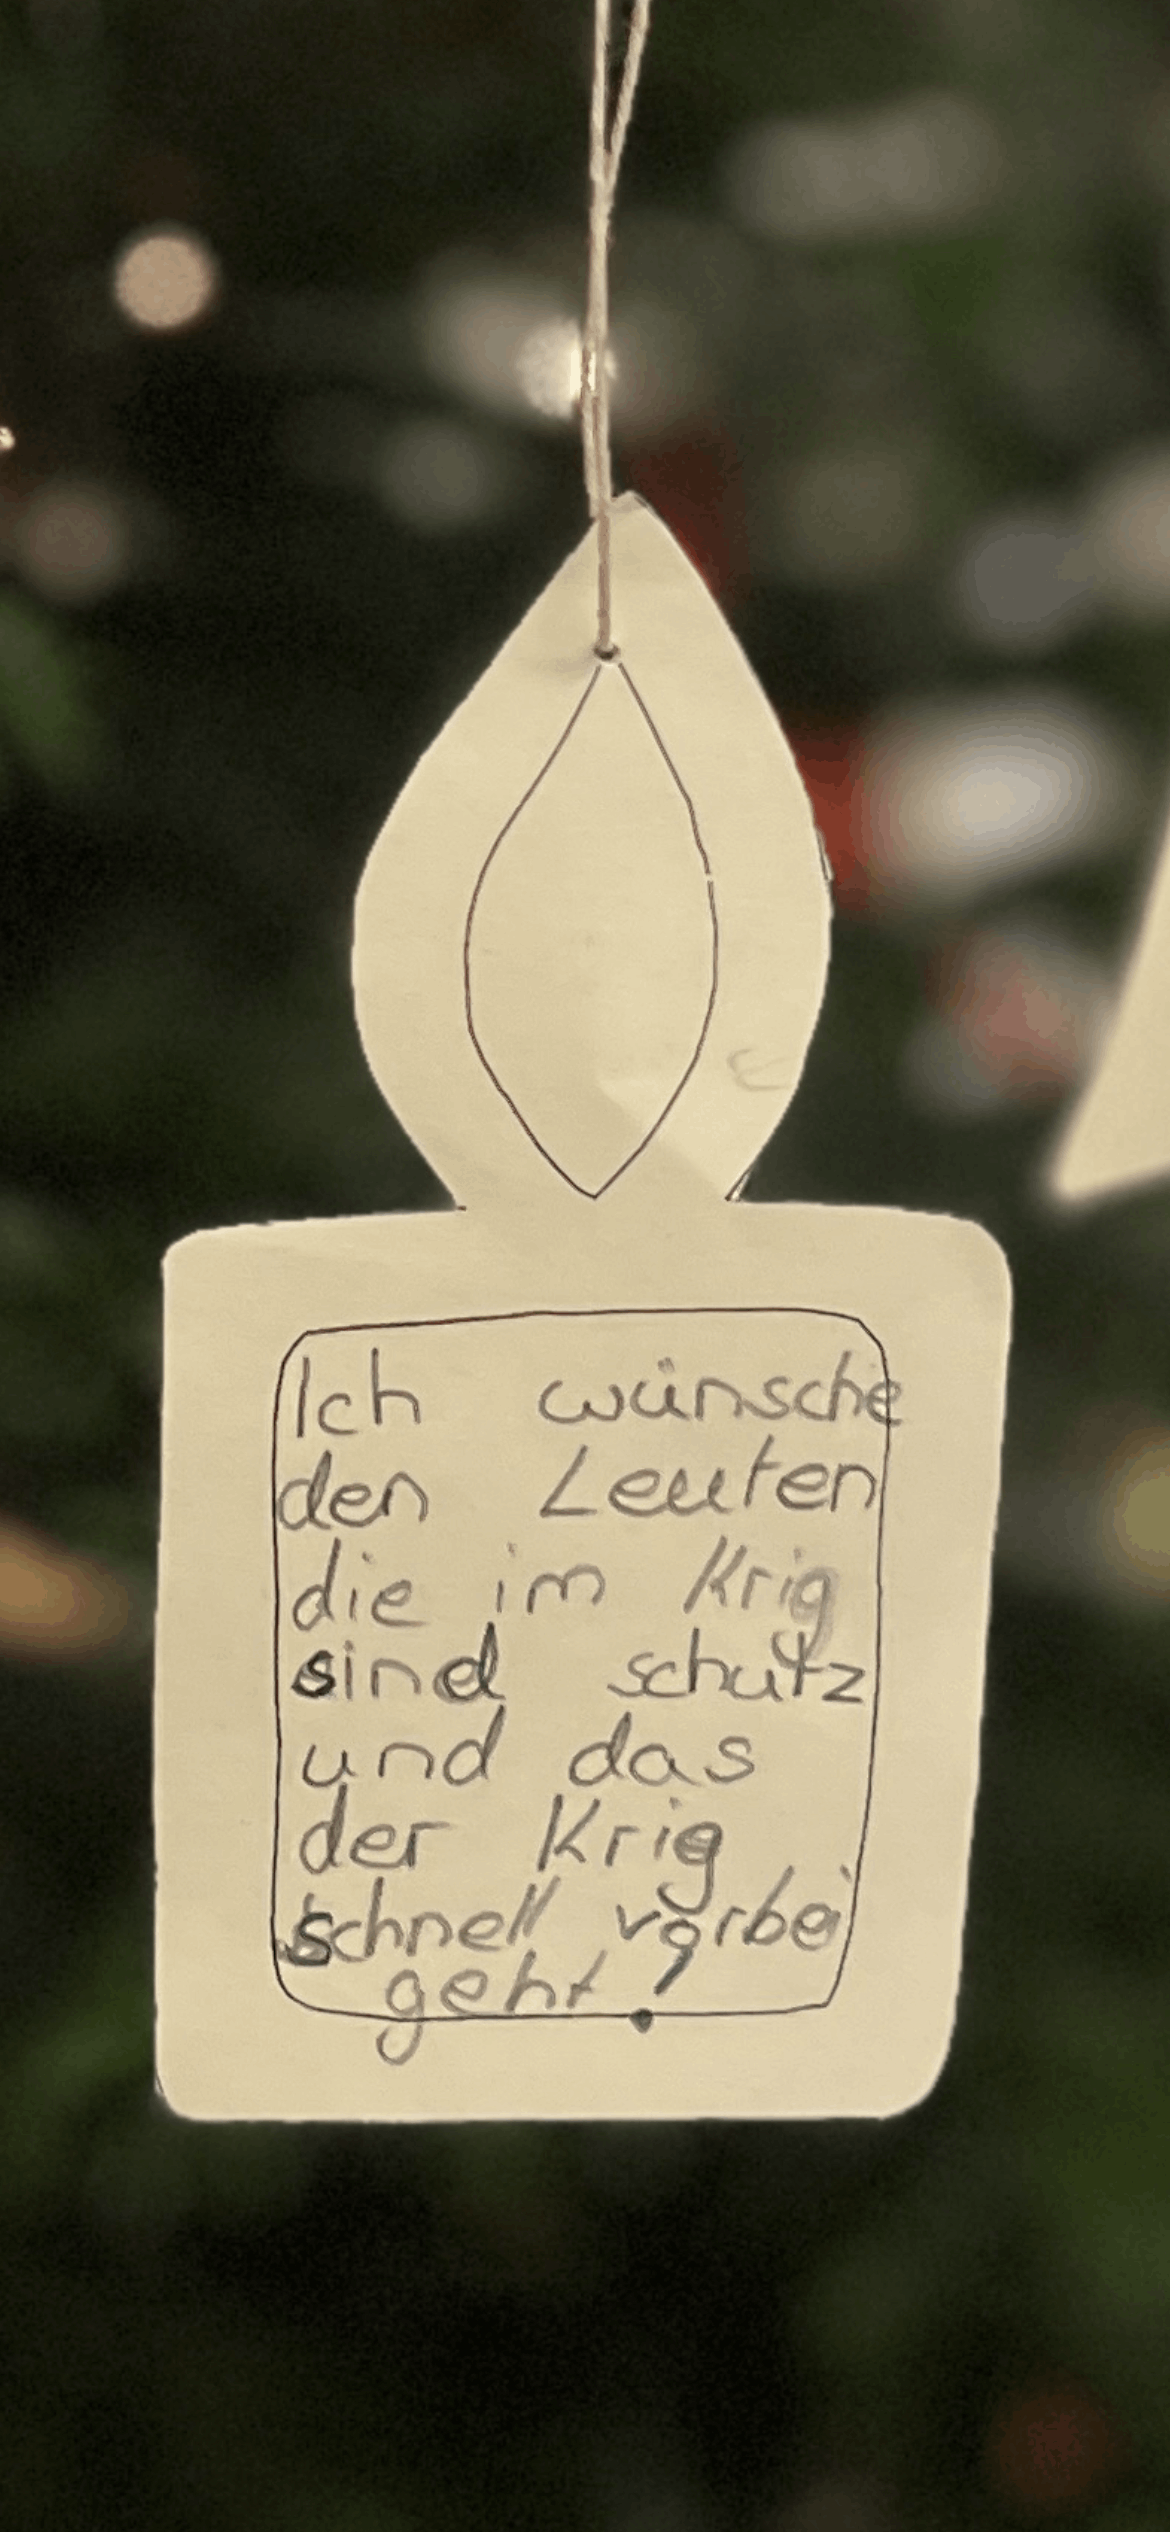 Ich wünsche
den Leuten
die im Krig
sind schutz
und das
der Krig
schnell vorbei
geht!